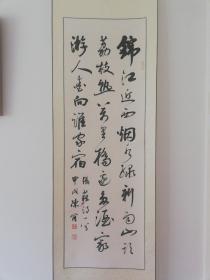 錦江近西烟水綠新雨山頭
荔枝熟萬里橋邊多酒家
游人愛向誰家宿
張籍詩一首
甲戌陳